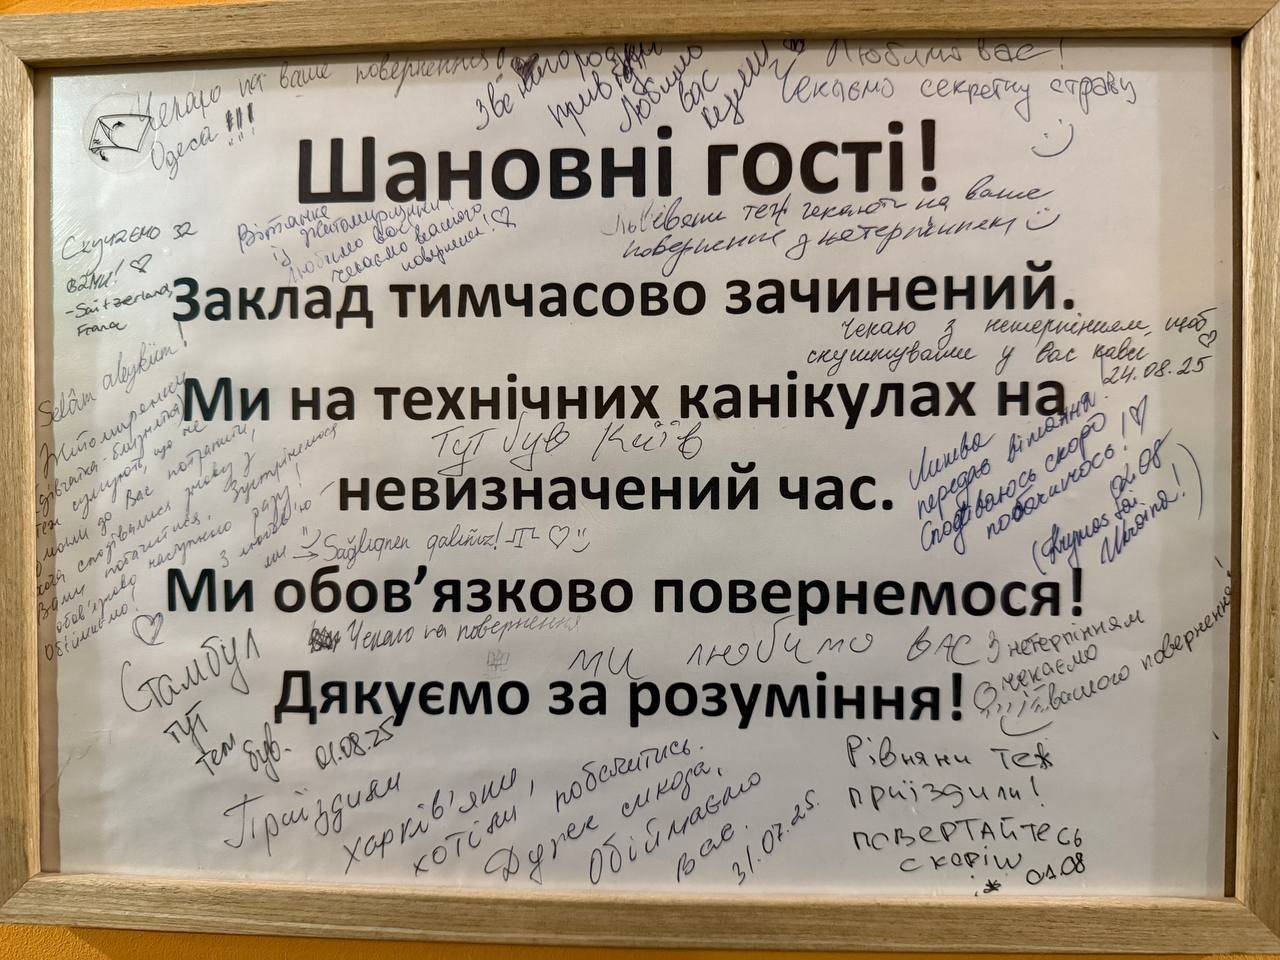 Чекаю на ваше повернення
Одеса !!!
Любимо вас
Любимо вас!
Чекаємо секретну страву
Шановні гості!
Скучаємо за
вами! ♡
Вітання
із Житомира
Любимо вас!
чекаємо вашого
повернення! ♡
Львівяни теж чекають на ваше
повернення з нетерпінням
Заклад тимчасово зачинений.
Чекаю з нетерпінням, щоб
скуштувати у вас кави
24.08.25
Selâm aleyküm!
Ми на технічних канікулах на
Тут був Київ
невизначений час.
Литва
передає вітання.
Сподіваюсь скоро
побачимось! ♡
02.08
(Krymos tai
Ukraina!)
дівчатка-близнята
теж сумують, що не
до Вас потрапили,
хоча сподівалися знову з
Вами побачитися. Зустрінемося
обов'язково наступного разу!
Обіймаємо!
З любов'ю
Ми обов’язково повернемося!
Чекаю на повернення
МИ ЛЮБИМО ВАС
З нетерпінням
чекаємо
вашого повернення!
Дякуємо за розуміння!
Стамбул
тут
теж був.
01.08.25
Приїздили
харків'яни,
хотіли побачитись.
Дуже шкода,
Обіймаємо
Вас.
31.07.25.
Рівняни теж
приїздили!
ПОВЕРТАЙТЕСЬ
скоріш
01.08